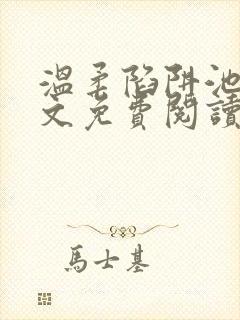 溫柔陷阱池
文免費閱讀
馬士基